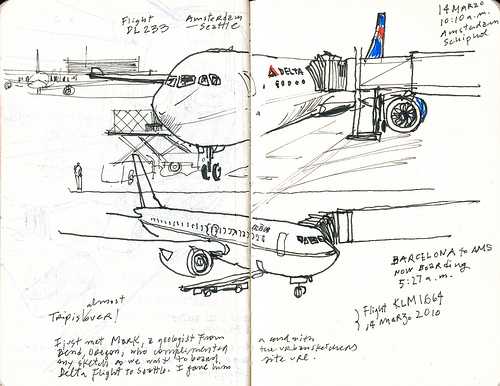 Flight
DL 233
Amsterdam
— Seattle
14 MARZO
10:10 a.m.
Amsterdam
Schiphol
DELTA
BARCELONA to AMS
NOW BOARDING
5:27 a.m.
Flight KLM1664
14 MARZO 2010
almost
Trip is over!
First met Mark, a geologist from
Bend, Oregon, who complimented
my sketch as we wait to board
Delta flight to Seattle. I gave him
a card with
the urbansketchers
site url.